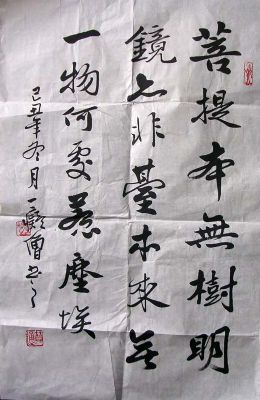 菩提本無樹明
鏡亦非臺本來無
一物何處惹塵埃
己丑年冬月一僧書之